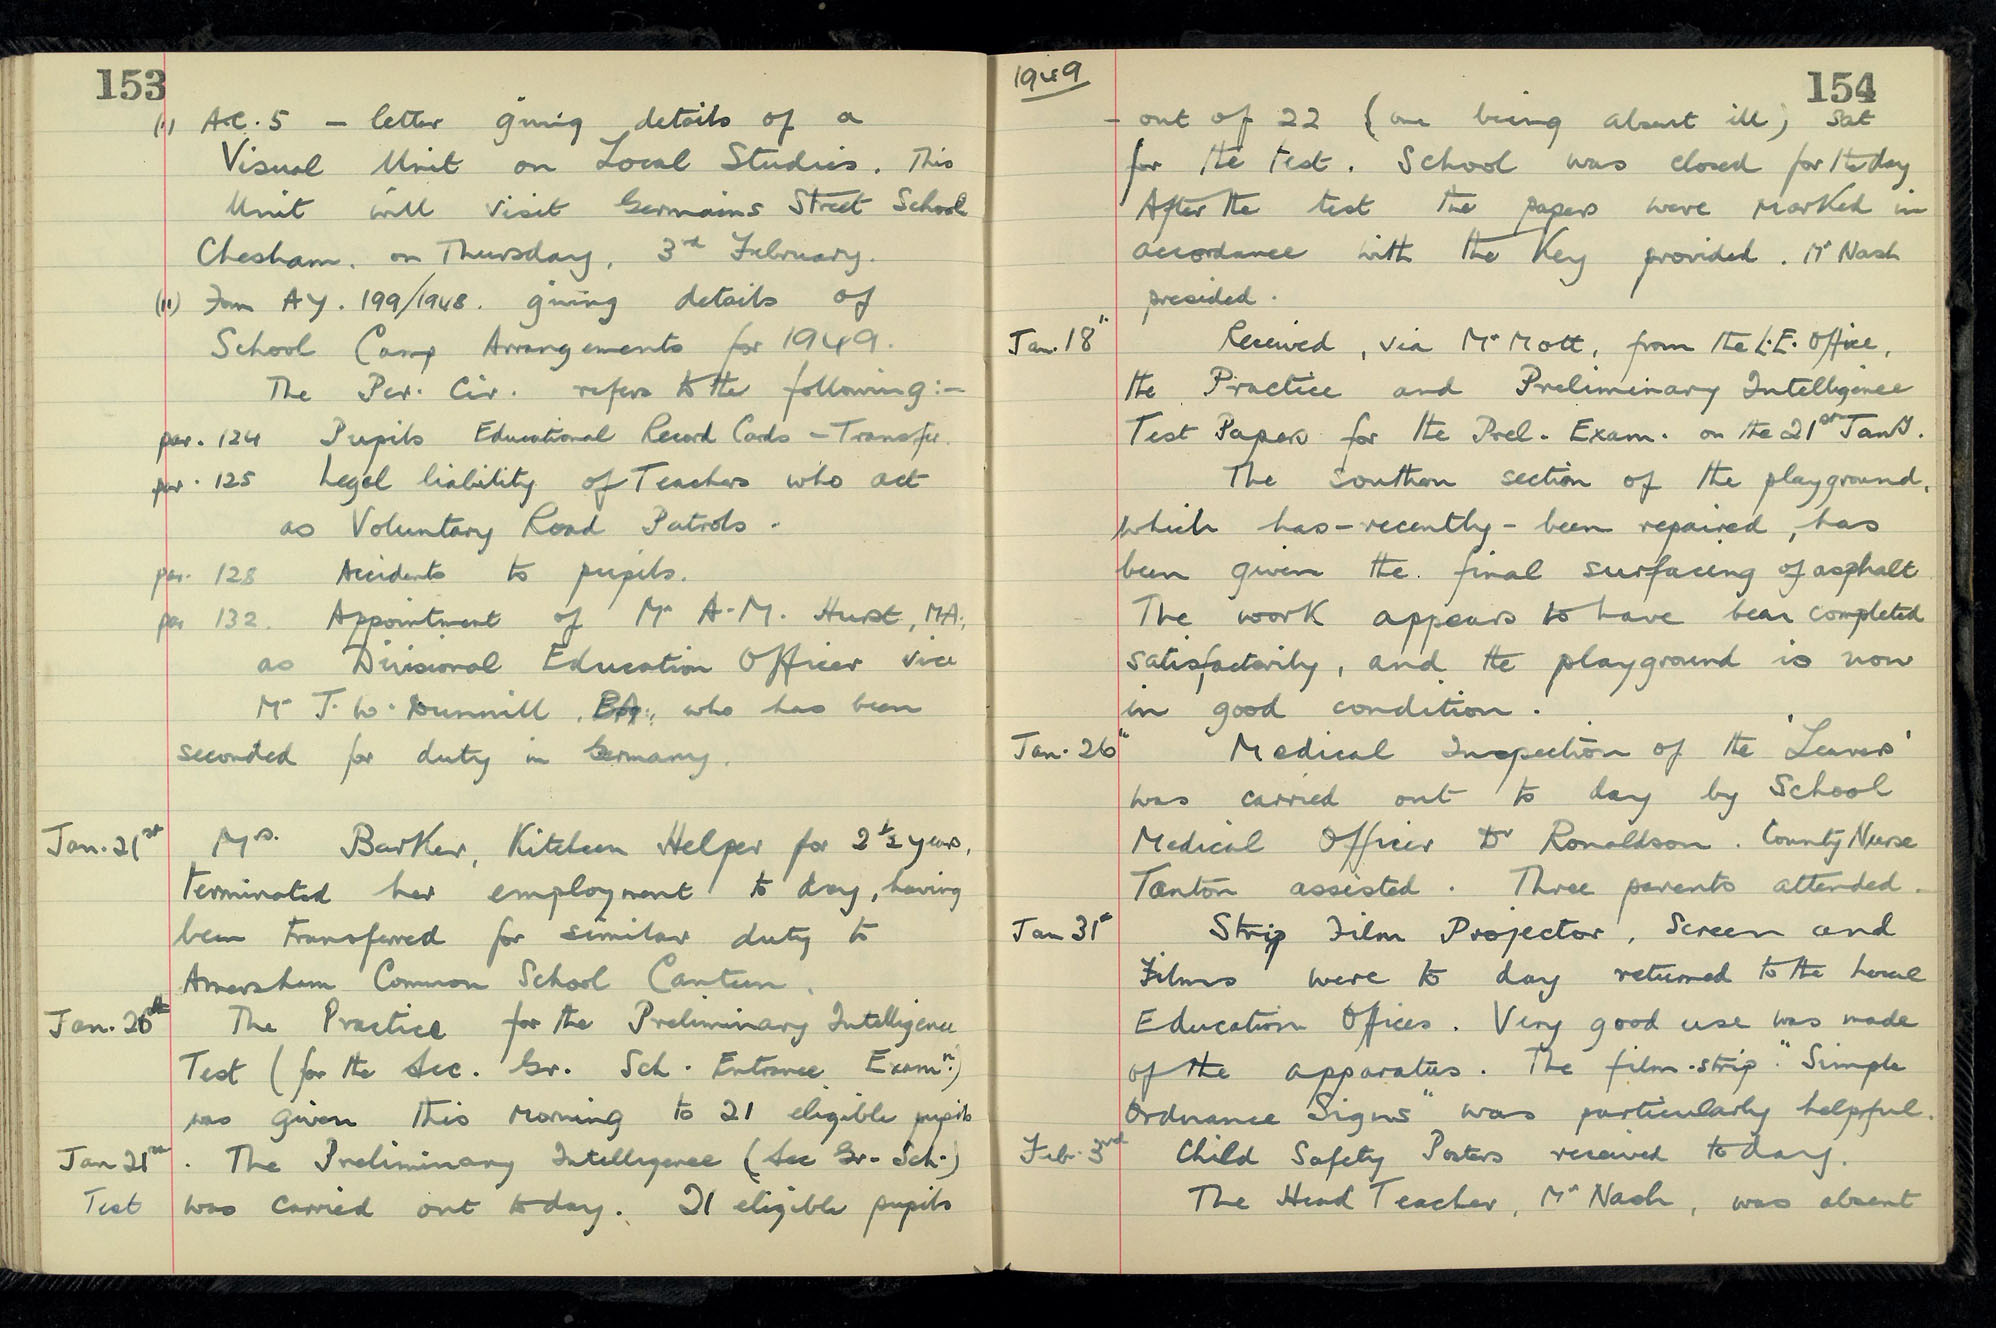 153
(i) A.C. 5 – letter giving details of a
Visual Unit on Local Studies. This
Unit will visit Germains Street School
Chesham. on Thursday, 3rd February.
(ii) Form AY. 199/1948. giving details of
School Camp Arrangements for 1949.
The Per. Cir. refers to the following:–
par. 124 Pupils Educational Record Cards – Transfer.
par. 125 Legal liability of Teachers who act
as Voluntary Road Patrols.
par. 128 Accidents to pupils.
par 132. Appointment of Mr A.M. Hurst, MA.,
as Divisional Education Officer vice
Mr J. W. Dunnill, who has been
seconded for duty in Germany.
Jan. 21st Mrs. Barker, Kitchen Helper for 2½ years,
terminated her employment to day, having
been transferred for similar duty to
Amersham Common School Canteen.
Jan. 20th The Practice for the Preliminary Intelligence
Test (for the Sec. Gr. Sch. Entrance Examn.)
was given this morning to 21 eligible pupils
Jan 21st. The Preliminary Intelligence (Sec Gr. Sch.)
Test was carried out today. 21 eligible pupils
1949
154
– out of 22 (one being absent ill) sat
for the test. School was closed for the day
After the test the papers were marked in
accordance with the Key provided. Mr Nash
presided.
Jan. 18th Received, via Mr Mott, from the L.E. Office,
the Practice and Preliminary Intelligence
Test Papers for the Prel. Exam. on the 21st Jany.
The southern section of the playground,
which has – recently – been repaired, has
been given the final surfacing of asphalt
The work appears to have been completed
satisfactorily, and the playground is now
in good condition.
Jan. 26th Medical Inspection of the 'Leavers'
was carried out to day by School
Medical Officer Dr Ronaldson. County Nurse
Tanton assisted. Three parents attended.
Jan 31st Strip Film Projector, Screen and
Films were to day returned to the Local
Education Offices. Very good use was made
of the apparatus. The film-strip "Simple
Ordnance Signs" was particularly helpful.
Feb. 3rd Child Safety Posters received to day.
The Head Teacher, Mr Nash, was absent